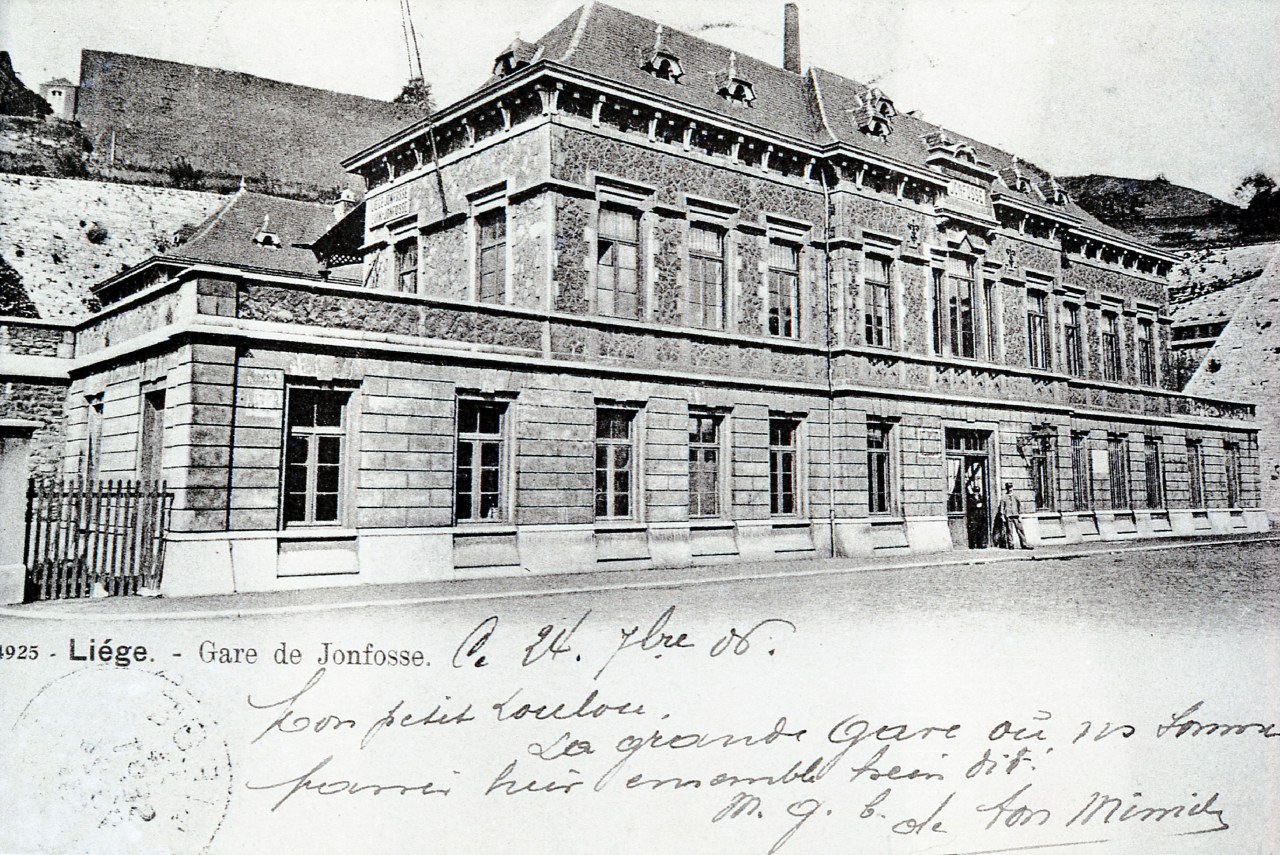 JONFOSSE
4925 - Liége. - Gare de Jonfosse. C. 24. 7bre 06.
Mon petit Loulou,
La grande Gare où ns somme
passer hier ensemble hein dit!
M. g. b. de ton Mimid